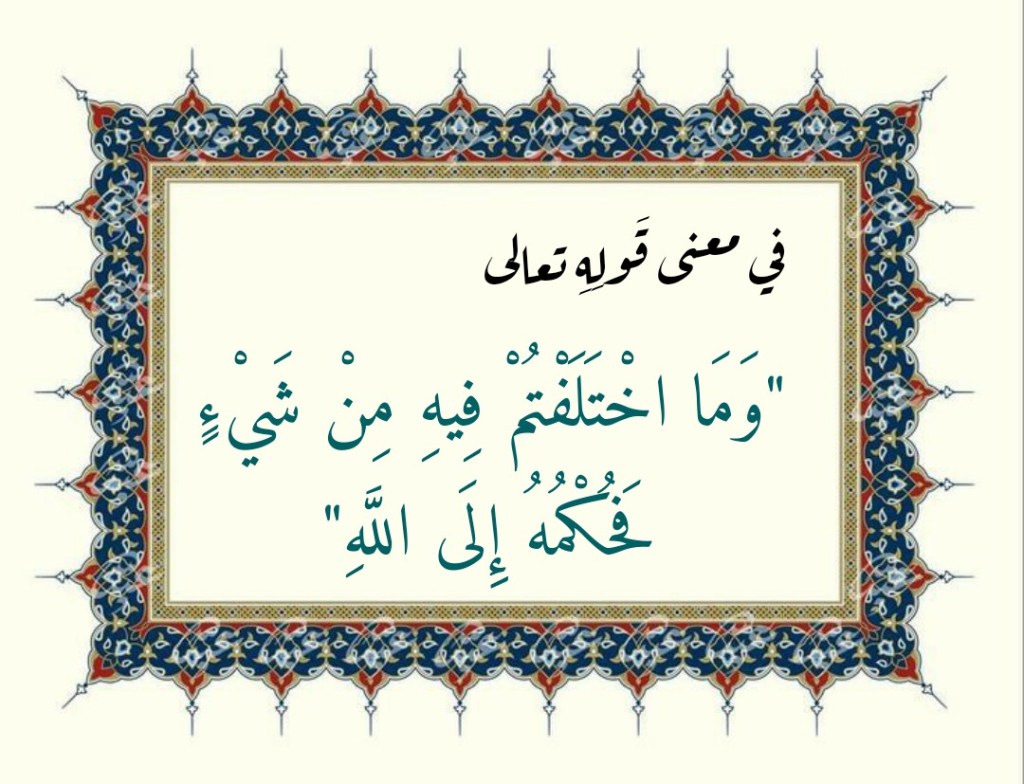 في معنى قَولِهِ تعالى
"وَمَا اخْتَلَفْتُمْ فِيهِ مِنْ شَيْءٍ
فَحُكْمُهُ إِلَى اللَّهِ"